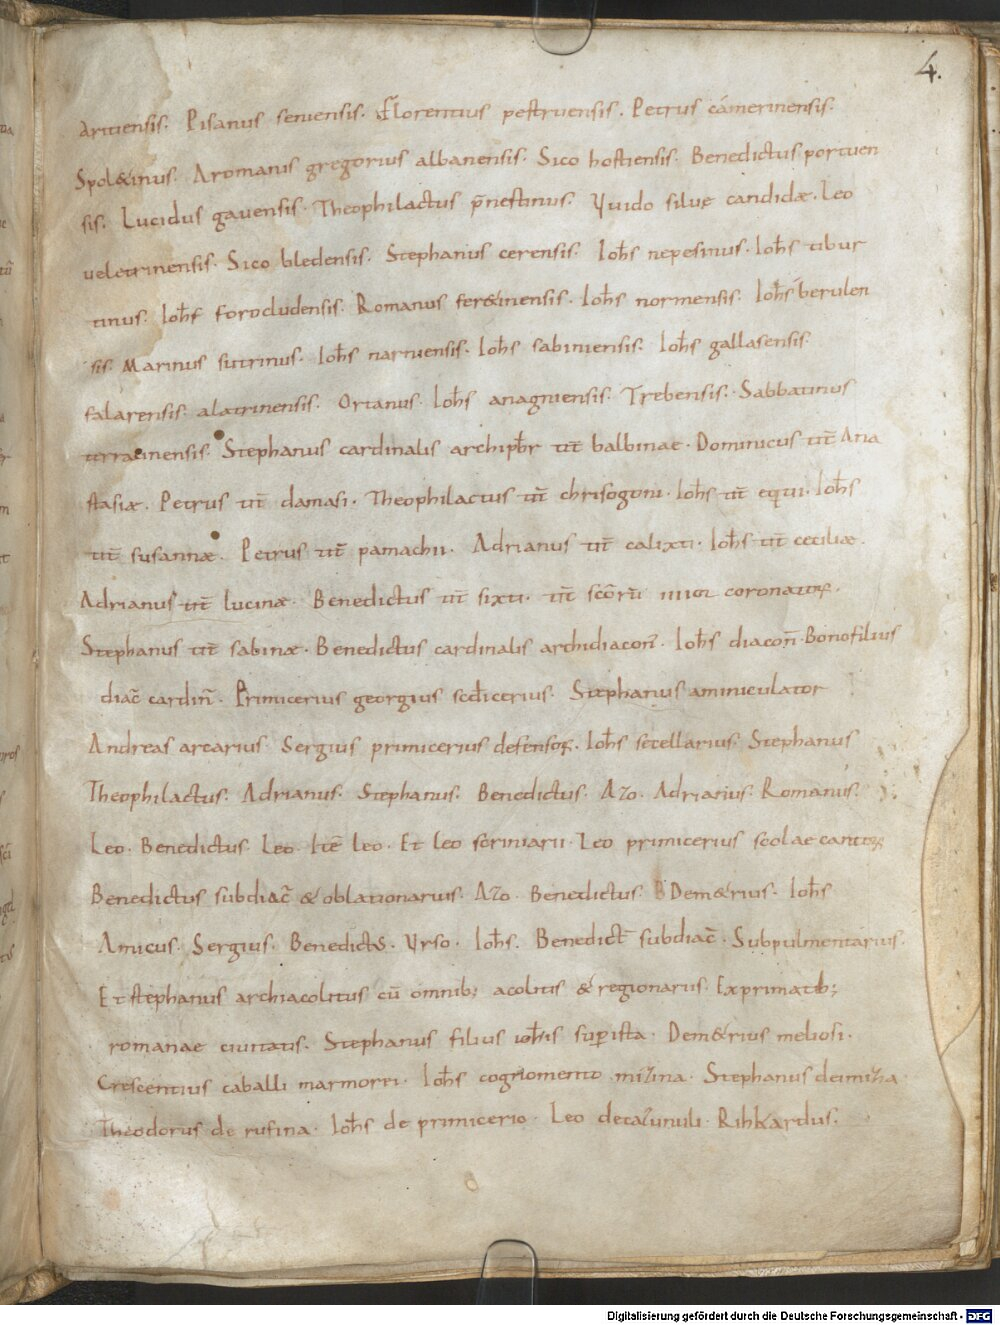 4.
Aritiensis. Pisanus senensis. Florentius pestruensis. Petrus camerinensis.
Spol&inus. A romanis gregorius albanensis. Sico hostiensis. Benedictus portuen
sis. Lucidus gauensis. Theophilactus p̄nestinus. Vuido silue candidæ. Leo
ueletrinensis. Sico bledensis. Stephanus cerensis. Ioh̄s nepesinus. Ioh̄s tibur
tinus. Ioh̄s forocludensis. Romanus fer&inensis. Ioh̄s normensis. Ioh̄s berulen
sis. Marinus sutrinus. Ioh̄s narniensis. Ioh̄s sabiniensis. Ioh̄s gallasensis.
falarensis. alatrinensis. Ortanus. Ioh̄s anagniensis. Trebensis. Sabbatinus
terracinensis. Stephanus cardinalis archipb̄r tit̄ balbinae. Dominicus tit̄ Ana
stasiæ. Petrus tit̄ damasi. Theophilactus tit̄ chrisogoni. Ioh̄s tit̄ equi. Ioh̄s
tit̄ susannæ. Petrus tit̄ pamachii. Adrianus tit̄ calixti. Ioh̄s tit̄ ceciliæ.
Adrianus tit̄ lucinæ. Benedictus tit̄ sixti. tit̄ scōrū coronatoꝝ.
Stephanus tit̄ sabinæ. Benedictus cardinalis archidiacon̄. Ioh̄s diacon̄. Bonofilius
diac̄ cardin̄. Primicerius georgius scdicerius. Stephanus aminiculator
Andreas arcarius. Sergius primicerius defensoꝝ. Ioh̄s scellarius. Stephanus
Theophilactus. Adrianus. Stephanus. Benedictus. Azo. Adrianus. Romanus.
Leo. Benedictus. Leo. Itē leo. Et leo scriniarii. Leo primicerius scolae cantoꝝ
Benedictus subdiac̄ & oblationarius. Azo. Benedictus. Dem&rius. Ioh̄s
Amicus. Sergius. Benedictus. Vrso. Ioh̄s. Benedict̄ subdiac̄. Subpulmentarius.
Et stephanus archiacolitus cū omnib; acolitis & regionariis. Ex primatib;
romanae ciuitatis. Stephanus filius ioh̄is sup̄ista. Dem&rius meliosi.
Crescentius caballi marmorei. Ioh̄s cognomento mizina. Stephanus deimiza
Theodorus de rufina. Ioh̄s de primicerio. Leo decazunuli. Rihkardus.
Digitalisierung gefördert durch die Deutsche Forschungsgemeinschaft - DFG